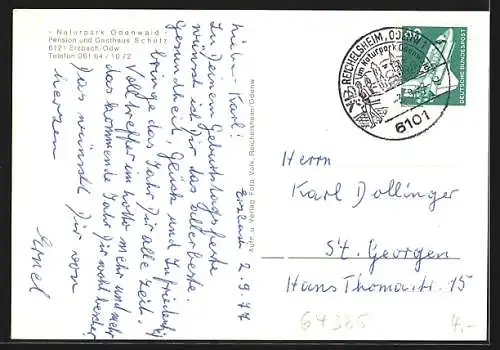 - Naturpark Odenwald -
Pension und Gasthaus Schütz
6121 Erzbach/Odw
Telefon 061 64 / 10 72
Erzbach 2.9.77
Lieber Karl!
Zu Deinem Geburtstagsfeste
wünsch ich Dir das allerbeste.
Gesundheit, Glück und Zufriedenheit
bringe das Jahr Dir alle Zeit.
Volltreffer im Lotto mehr und mehr
das kommende Jahr Dir wohl bescher
Das wünscht Dir von
Herzen
Aufn. u. Verlag Foto Volk, Reichelsheim-Odenw.
REICHELSHEIM, ODENW
im Naturpark Odenwald
6101
DEUTSCHE BUNDESPOST
Herrn
Karl Dollinger
St. Georgen
Hans Thomastr. 15
64385
4,-